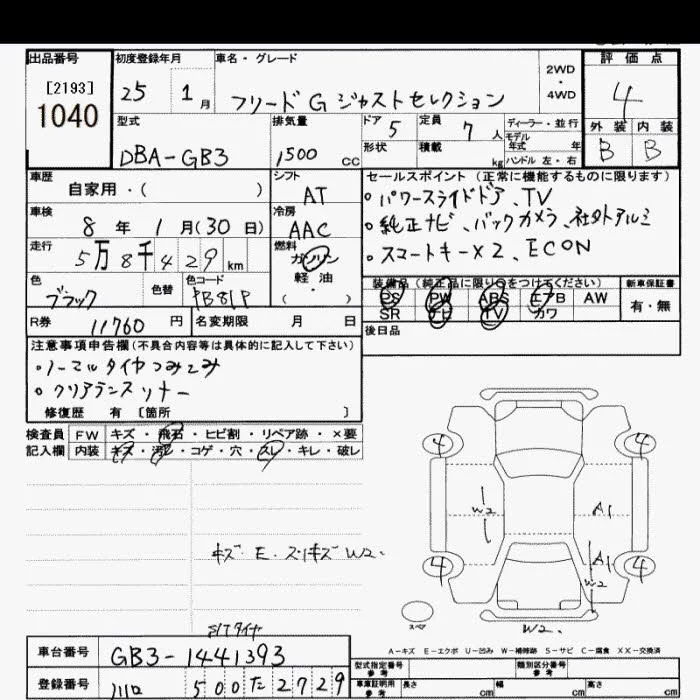 出品番号 初度登録年月 車名・グレード 2WD・4WD 評価点
[2193]
1040
25 1月 フリード G ジャストセレクション 4
型式 排気量 ドア 定員 ディーラー・並行 外装 内装
DBA-GB3 1500cc 5 7人 モデル年式 年 B B
形状 積載 kg ハンドル 左・右
車歴 シフト セールスポイント(正常に機能するものに限ります)
自家用・( ) AT 。パワースライドドア、TV
車検 冷房 。純正ナビ、バックカメラ、社外アルミ
8年 1月(30日) AAC
走行 燃料 。スマートキー×2、ECON
5万8千429km ガソリン
軽・油
( )
色 色替 色コード 装備品(純正品に限り○をつけてください) 新車保証書
ブラック PB81P PS PW ABS エアB AW 有・無
SR ナビ TV カワ
R券 11760円 名変期限 月 日 後日品
注意事項申告欄(不具合内容等は具体的に記入して下さい)
・ノーマルタイヤつみこみ
。クリアランスソナー
修復歴 有 〔箇所 〕
検査員 FW キズ・飛石・ヒビ割・リペア跡・×要
記入欄 内装 キズ・汚レ・コゲ・穴・スレ・キレ・破レ
キズ. E. スリキズ W2.
4 4
W2 A1
A1
4 4
W2
スペア W2.
A-キズ E-エクボ U-凹み W-補修跡 S-サビ C-腐食 XX-交換済
車台番号 GB3-1441393
型式指定番号 参考 類別区分番号 参考
登録番号 川口 500た2729
車庫証明用 参考 長さ cm 幅 cm 高さ cm